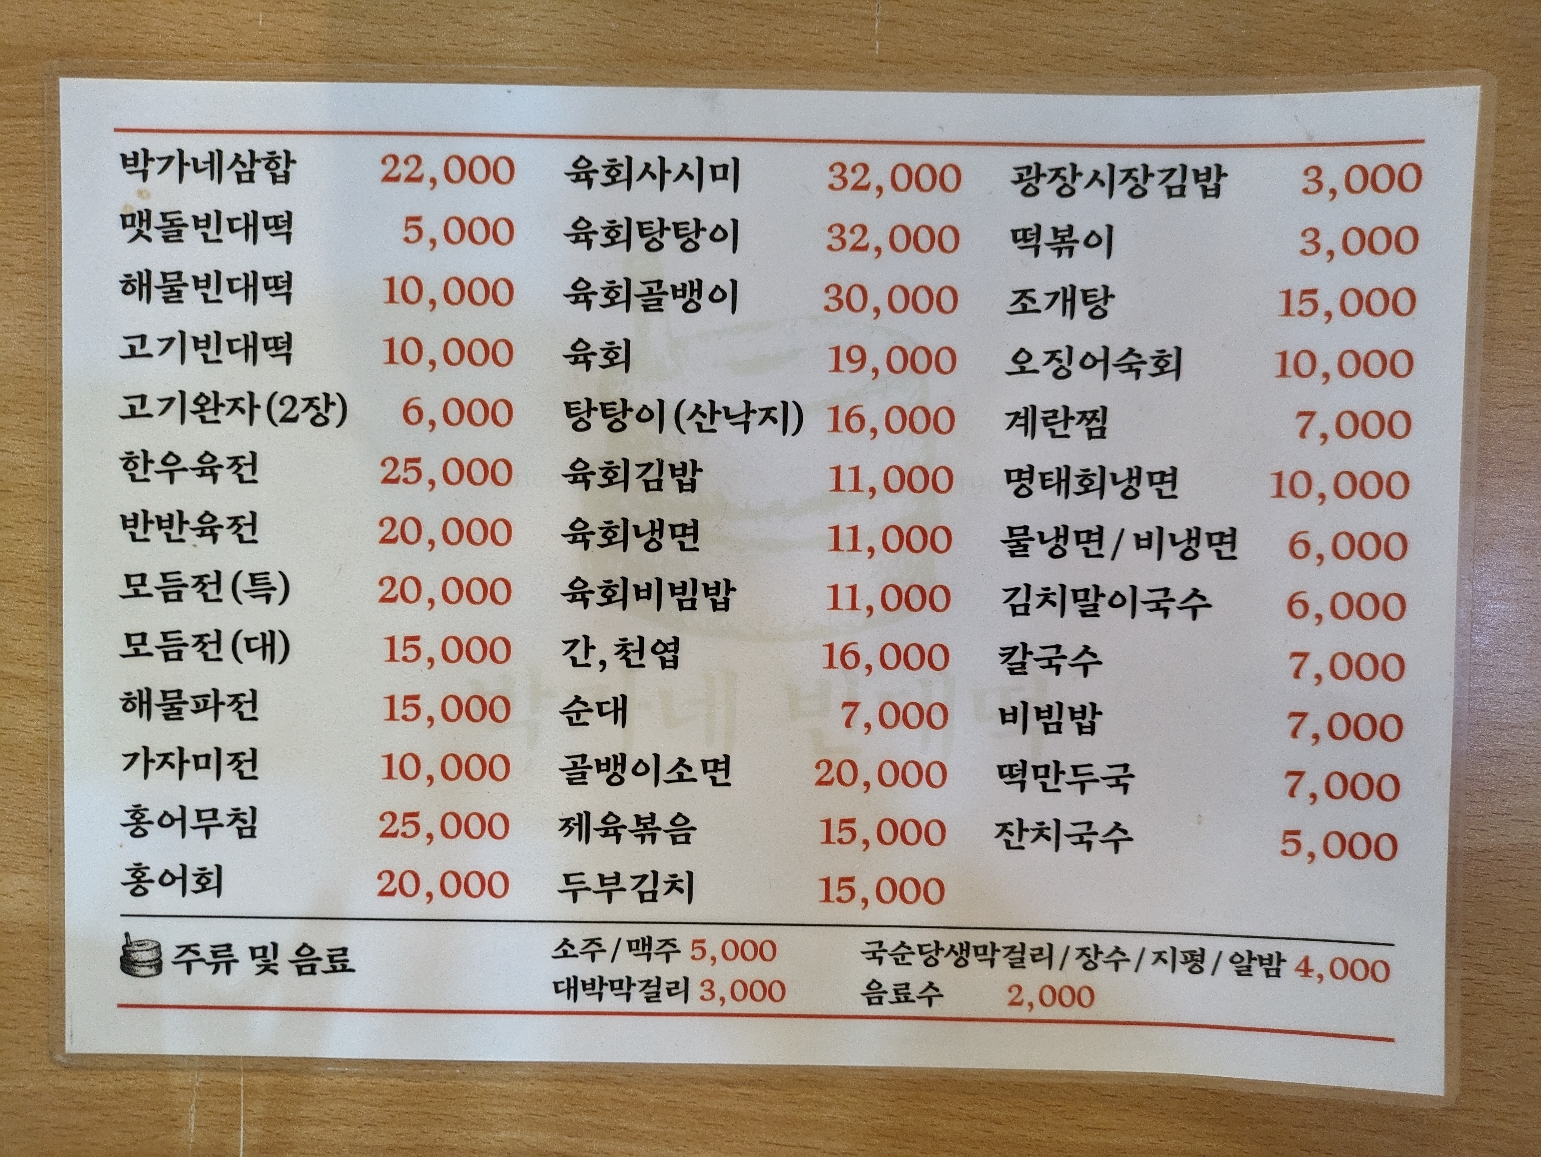 박가네삼합 22,000
맷돌빈대떡 5,000
해물빈대떡 10,000
고기빈대떡 10,000
고기완자(2장) 6,000
한우육전 25,000
반반육전 20,000
모듬전(특) 20,000
모듬전(대) 15,000
해물파전 15,000
가자미전 10,000
홍어무침 25,000
홍어회 20,000
육회사시미 32,000
육회탕탕이 32,000
육회골뱅이 30,000
육회 19,000
탕탕이(산낙지) 16,000
육회김밥 11,000
육회냉면 11,000
육회비빔밥 11,000
간,천엽 16,000
순대 7,000
골뱅이소면 20,000
제육볶음 15,000
두부김치 15,000
광장시장김밥 3,000
떡볶이 3,000
조개탕 15,000
오징어숙회 10,000
계란찜 7,000
명태회냉면 10,000
물냉면/비냉면 6,000
김치말이국수 6,000
칼국수 7,000
비빔밥 7,000
떡만두국 7,000
잔치국수 5,000
주류 및 음료
소주/맥주 5,000
대박막걸리 3,000
국순당생막걸리/장수/지평/알밤 4,000
음료수 2,000
박가네 빈대떡